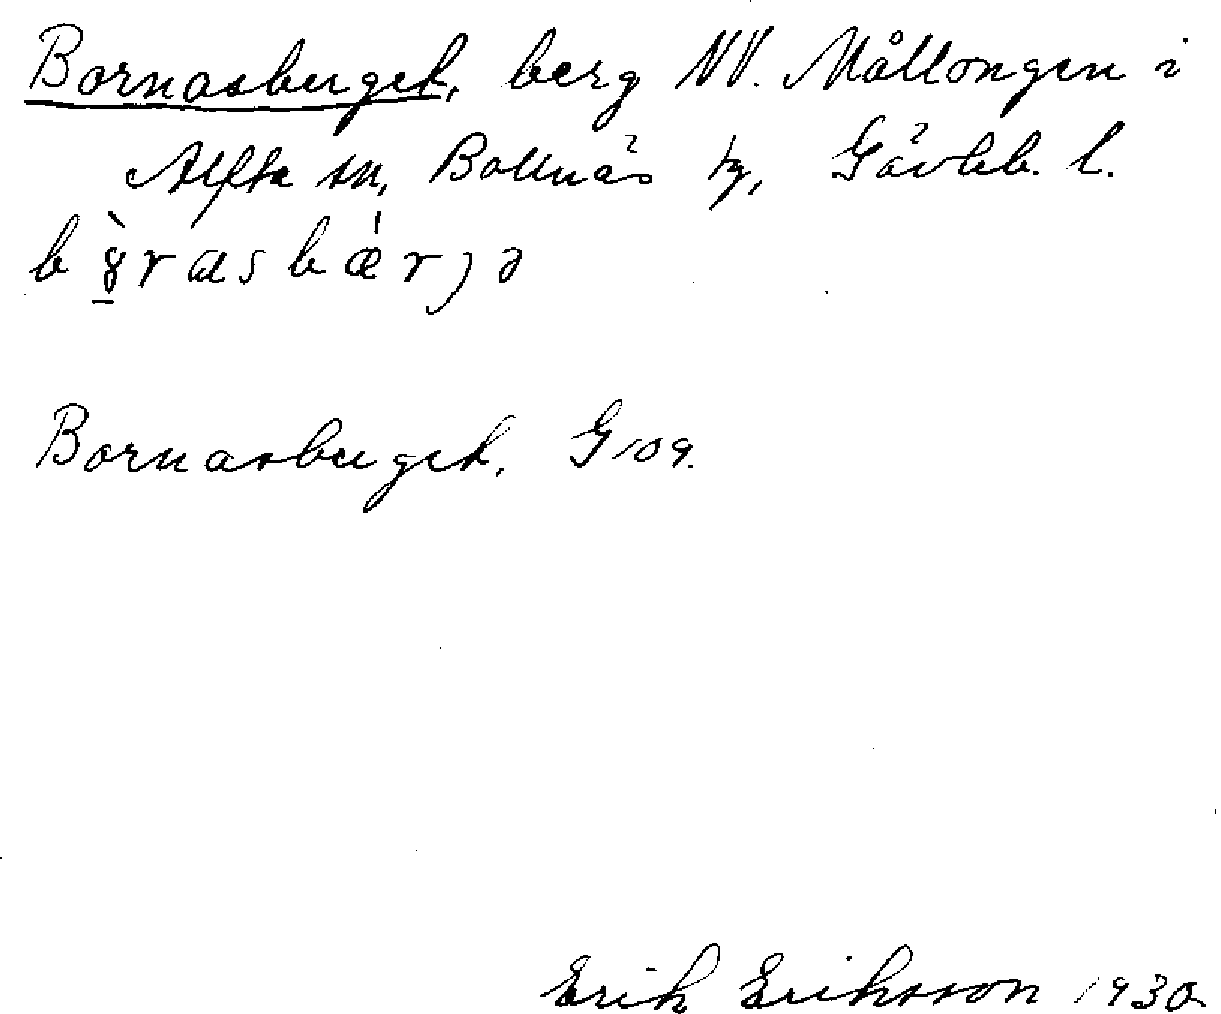 Bornasberget, berg NV. Mållongen i
Alfta sn, Bollnäs tg, Gävleb. l.
Bornasberget. G 109.
Erik Eriksson 1930